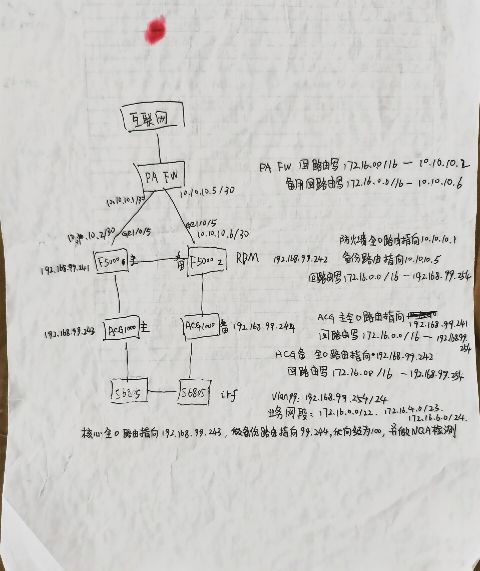 互联网
PA FW
PA FW 回路由写:172.16.0.0/16 — 10.10.10.2
备用回路由写:172.16.0.0/16 — 10.10.10.6
10.10.10.1/30
10.10.10.5/30
10.10.10.2/30
GE1/0/5
GE1/0/5
10.10.10.6/30
192.168.99.241
F5000
主
备
F5000 2
RBM
192.168.99.242
防火墙全0路由指向10.10.10.1
备路由指向10.10.10.5
回路由写:172.16.0.0/16 — 192.168.99.254
192.168.99.243
ACG1000
主
ACG1000
备
192.168.99.244
ACG主全0路由指向
192.168.99.241
回路由写:172.16.0.0/16 — 192.168.99.254
ACG备 全0路由指向192.168.99.242
回路由写172.16.0.0/16 — 192.168.99.254
S6805
S6805
irf
Vlan99: 192.168.99.254/24
业务网段: 172.16.0.0/22. 172.16.4.0/23.
172.16.6.0/24.
核心全0路由指向192.168.99.243, 做备份路由指向99.244, 优先级为100, 并做NQA检测